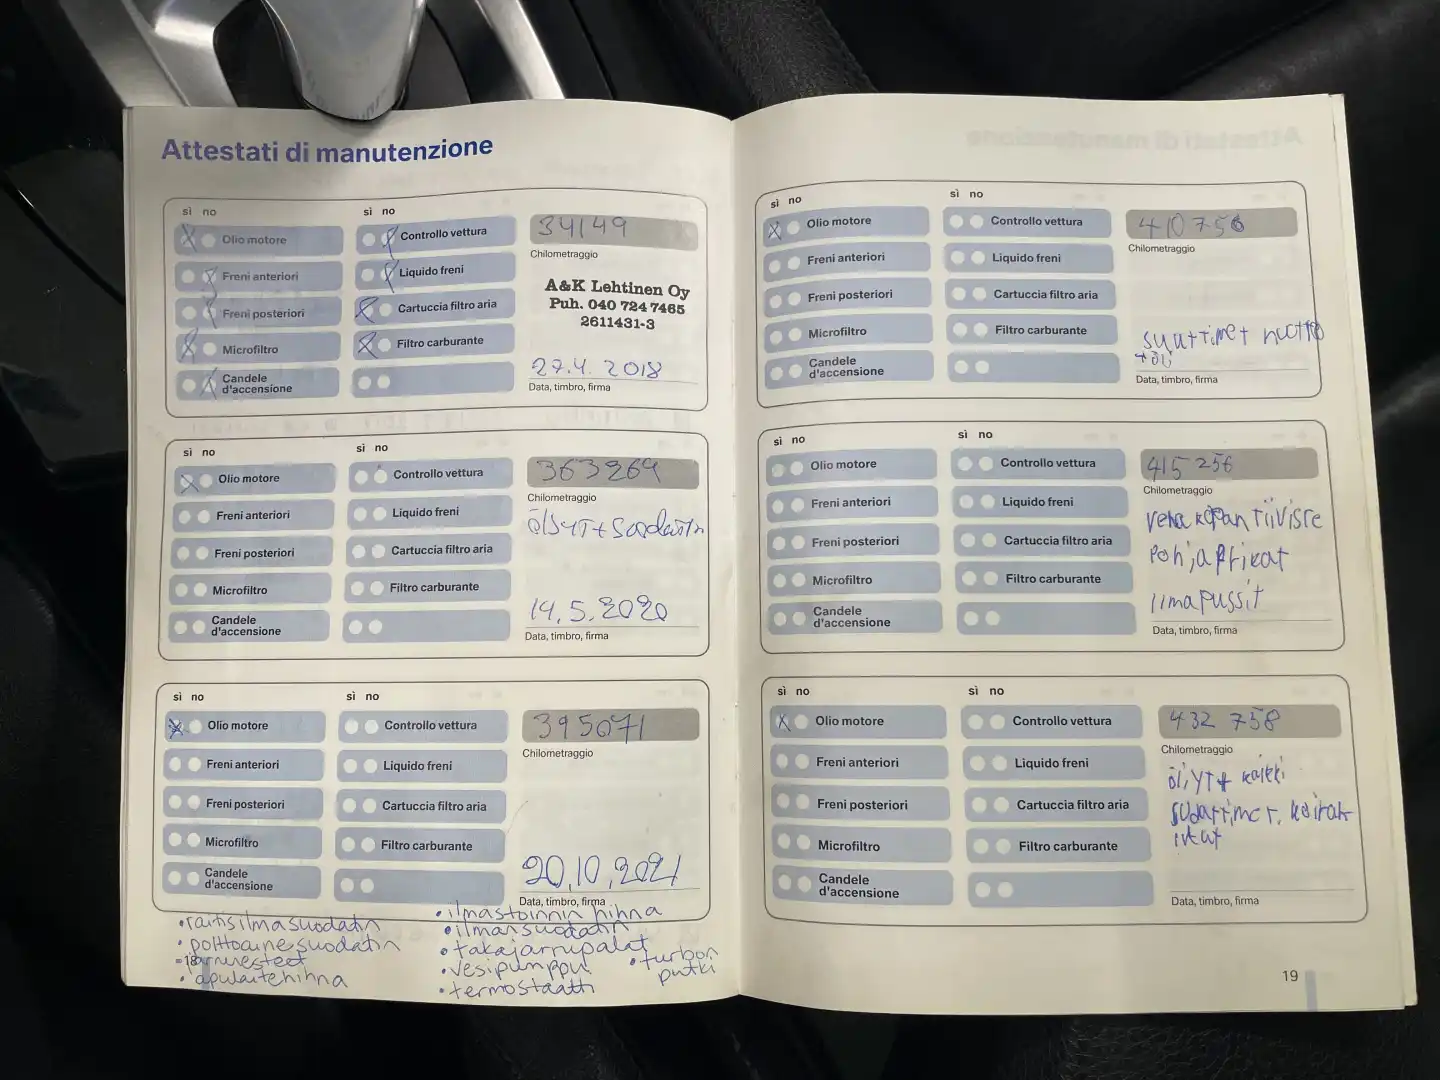 Attestati di manutenzione
sì no
sì no
Olio motore
Freni anteriori
Freni posteriori
Microfiltro
Candele
d'accensione
Controllo vettura
Liquido freni
Cartuccia filtro aria
Filtro carburante
34149
Chilometraggio
A&K Lehtinen Oy
Puh. 040 724 7465
2611431-3
27.4. 2018
Data, timbro, firma
sì no
sì no
Olio motore
Freni anteriori
Freni posteriori
Microfiltro
Candele
d'accensione
Controllo vettura
Liquido freni
Cartuccia filtro aria
Filtro carburante
363269
Chilometraggio
öljyt + suodatin
14.5.2020
Data, timbro, firma
sì no
sì no
Olio motore
Freni anteriori
Freni posteriori
Microfiltro
Candele
d'accensione
Controllo vettura
Liquido freni
Cartuccia filtro aria
Filtro carburante
395071
Chilometraggio
20.10.2021
Data, timbro, firma
• raitisilmasuodatin
• polttoainesuodatin
• jarrunesteet
• apulaitehihna
• ilmastoinnin hihna
• ilmansuodatin
• takajarrupalat
• vesipumppu
• termostaatti
• turbon
putki
18
sì no
sì no
Olio motore
Freni anteriori
Freni posteriori
Microfiltro
Candele
d'accensione
Controllo vettura
Liquido freni
Cartuccia filtro aria
Filtro carburante
410756
Chilometraggio
+ölj
Data, timbro, firma
sì no
sì no
Olio motore
Freni anteriori
Freni posteriori
Microfiltro
Candele
d'accensione
Controllo vettura
Liquido freni
Cartuccia filtro aria
Filtro carburante
415 256
Chilometraggio
venakopan tiiviste
Pohjaprikat
ilmapussit
Data, timbro, firma
sì no
sì no
Olio motore
Freni anteriori
Freni posteriori
Microfiltro
Candele
d'accensione
Controllo vettura
Liquido freni
Cartuccia filtro aria
Filtro carburante
432 758
Chilometraggio
öljyt + kaikki
Data, timbro, firma
19